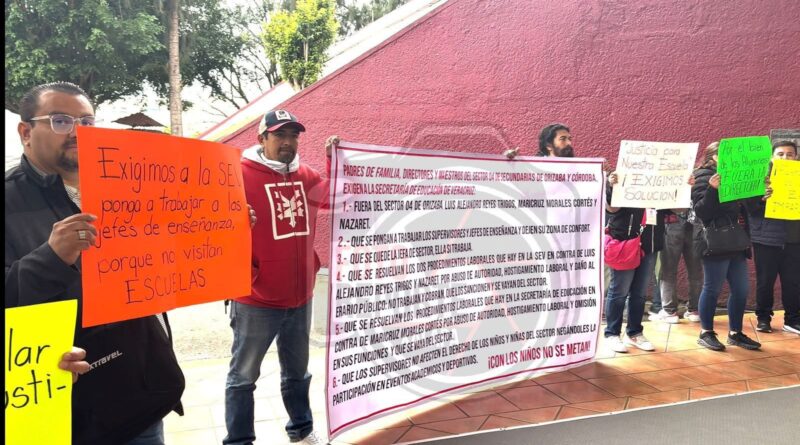 Exigimos a la SEV
ponga a trabajar a los
jefes de enseñanza,
porque no visitan
ESCUELAS
PADRES DE FAMILIA, DIRECTORES Y MAESTROS DEL SECTOR 04 DE SECUNDARIAS DE ORIZABA Y CÓRDOBA,
EXIGEN A LA SECRETARIA DE EDUCACIÓN DE VERACRUZ.
1.- FUERA DEL SECTOR 04 DE ORIZABA, LUIS ALEJANDRO REYES TRIGOS, MARICRUZ MORALES CORTÉS Y
NAZARET.
2.- QUE SE PONGAN A TRABAJAR LOS SUPERVISORES Y JEFES DE ENSEÑANZA Y DEJEN SU ZONA DE CONFORT.
3.- QUE SE QUEDE LA JEFA DEL SECTOR, ELLA SI TRABAJA.
4.- QUE SE RESUELVAN LOS DOS PROCEDIMIENTOS LABORALES QUE HAY EN LA SEV EN CONTRA DE LUIS
ALEJANDRO REYES TRIGOS Y NAZARET POR ABUSO DE AUTORIDAD, HOSTIGAMIENTO LABORAL Y DAÑO AL
ERARIO PÚBLICO: NO TRABAJAN Y COBRAN, QUE LOS SANCIONEN Y SE VAYAN DEL SECTOR.
5.- QUE SE RESUELVAN LOS PROCEDIMIENTOS LABORALES QUE HAY EN LA SECRETARIA DE EDUCACIÓN EN
CONTRA DE MARICRUZ MORALES CORTÉS POR ABUSO DE AUTORIDAD, HOSTIGAMIENTO LABORAL Y OMISIÓN
EN SUS FUNCIONES Y QUE SE VAYA DEL SECTOR.
6.- QUE LOS SUPERVISORES NO AFECTEN EL DERECHO DE LOS NIÑOS Y NIÑAS DEL SECTOR NEGÁNDOLES LA
PARTICIPACIÓN EN EVENTOS ACADÉMICOS Y DEPORTIVOS.
¡CON LOS NIÑOS NO SE METAN!
"Justicia para
Nuestra Escuela"
¡EXIGIMOS
SOLUCIÓN!
Por el bien
de los Alumnos
FUERA LA
DIRECTORA
XTRAVEL